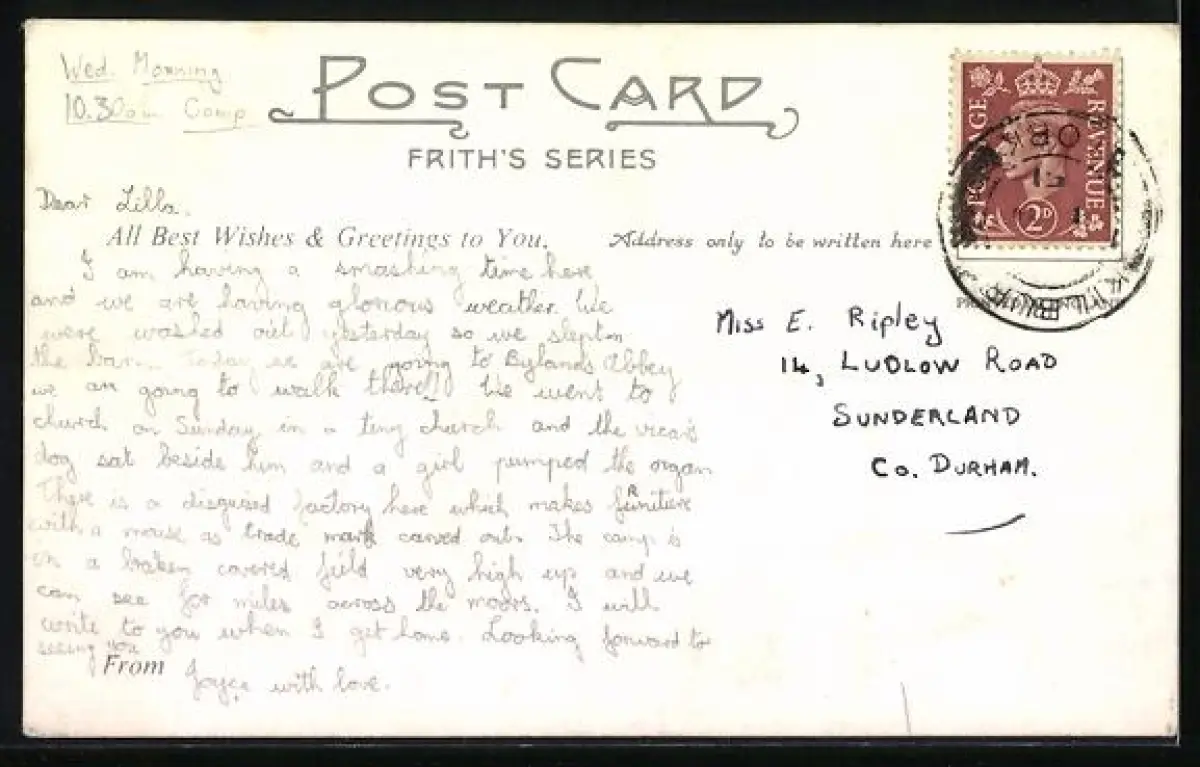 Wed. Morning
10.30am Camp
POST CARD
FRITH'S SERIES
Dear Lilla.
All Best Wishes & Greetings to You.
Address only to be written here
I am having a smashing time here
and we are having glorious weather. We
were washed out yesterday so we slept in
the barn. Today we are going to Bylands Abbey
we are going to walk there!! We went to
church on Sunday in a tiny church and the vicar's
dog sat beside him and a girl pumped the organ
There is a disguised factory here which makes furniture
with a mouse as trade mark carved out. The camp is
in a braken covered field very high up and we
can see for miles across the moors. I will
write to you when I get home. Looking forward to
seeing you
From Joyce with love.
POSTAGE REVENUE
2D
Miss E. Ripley
14, LUDLOW ROAD
SUNDERLAND
Co. DURHAM.